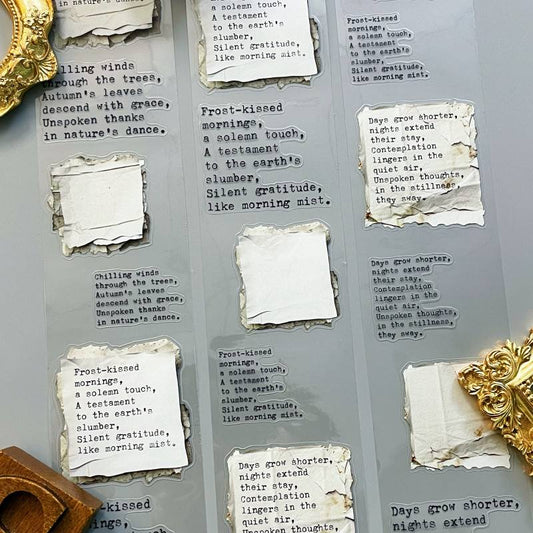 in nature's dance.
Chilling winds
through the trees,
Autumn's leaves
descend with grace,
Unspoken thanks
in nature's dance.
Chilling winds
through the trees,
Autumn's leaves
descend with grace,
Unspoken thanks
in nature's dance.
Frost-kissed
mornings,
a solemn touch,
A testament
to the earth's
slumber,
Silent gratitude,
like morning mist.
Frost-kissed
mornings,
a solemn touch,
A testament
to the earth's
slumber,
Silent gratitude,
like morning mist.
Frost-kissed
mornings,
a solemn touch,
A testament
to the earth's
slumber,
Silent gratitude,
like morning mist.
Frost-kissed
mornings,
a solemn touch,
A testament
to the earth's
slumber,
Silent gratitude,
like morning mist.
Days grow shorter,
nights extend
their stay,
Contemplation
lingers in the
quiet air,
Unspoken thoughts,
Frost-kissed
mornings,
a solemn touch,
A testament
to the earth's
slumber,
Silent gratitude,
like morning mist.
Days grow shorter,
nights extend
their stay,
Contemplation
lingers in the
quiet air,
Unspoken thoughts,
in the stillness,
they sway.
Days grow shorter,
nights extend
their stay,
Contemplation
lingers in the
quiet air,
Unspoken thoughts,
in the stillness,
they sway.
Days grow shorter,
nights extend